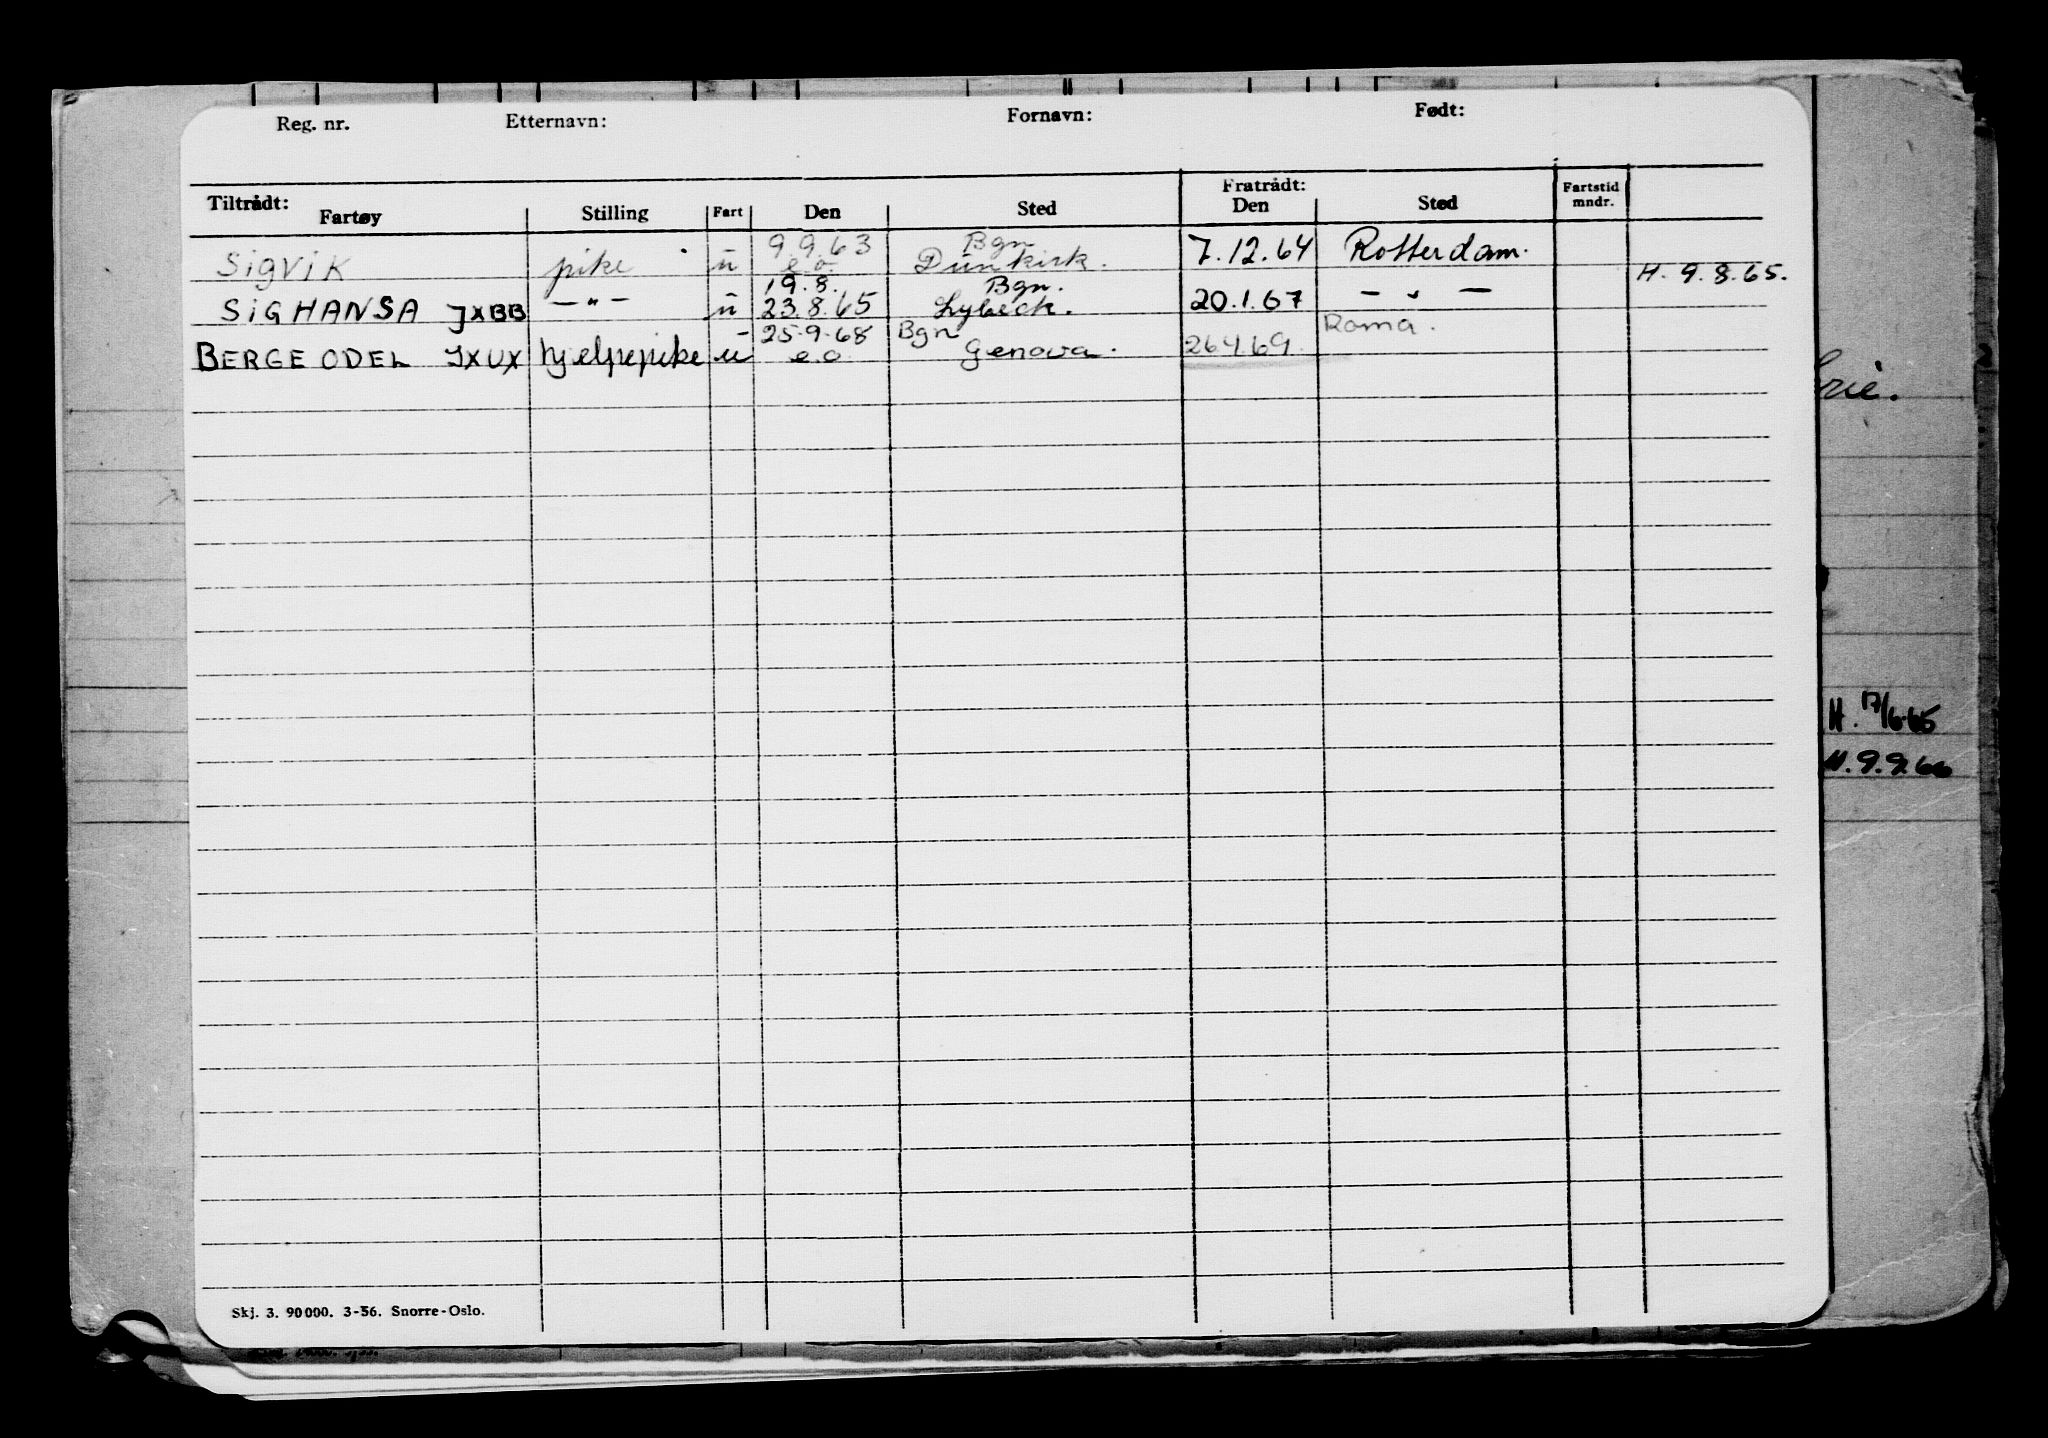 Reg. nr. Etternavn: Fornavn: Født:
Tiltrådt: Fratrådt:
Fartøy Stilling Fart Den Sted Den Sted Fartstid mndr.
9.9.63 Bgn
SIGVIK pike u e.o. Dunkirk. 7.12.64 Rotterdam.
19.8. Bgn. H. 9.8.65.
SIGHANSA JXBB —"— u 23.8.65 Lybeck. 20.1.67 —"—
25.9.68 Bgn Roma.
BERGE ODEL JXUX hjelpepike u e.o Genova. 26.4.69.
rie.
H. 17/6-65
H. 9.9.66
Skj. 3. 90000. 3-56. Snorre-Oslo.